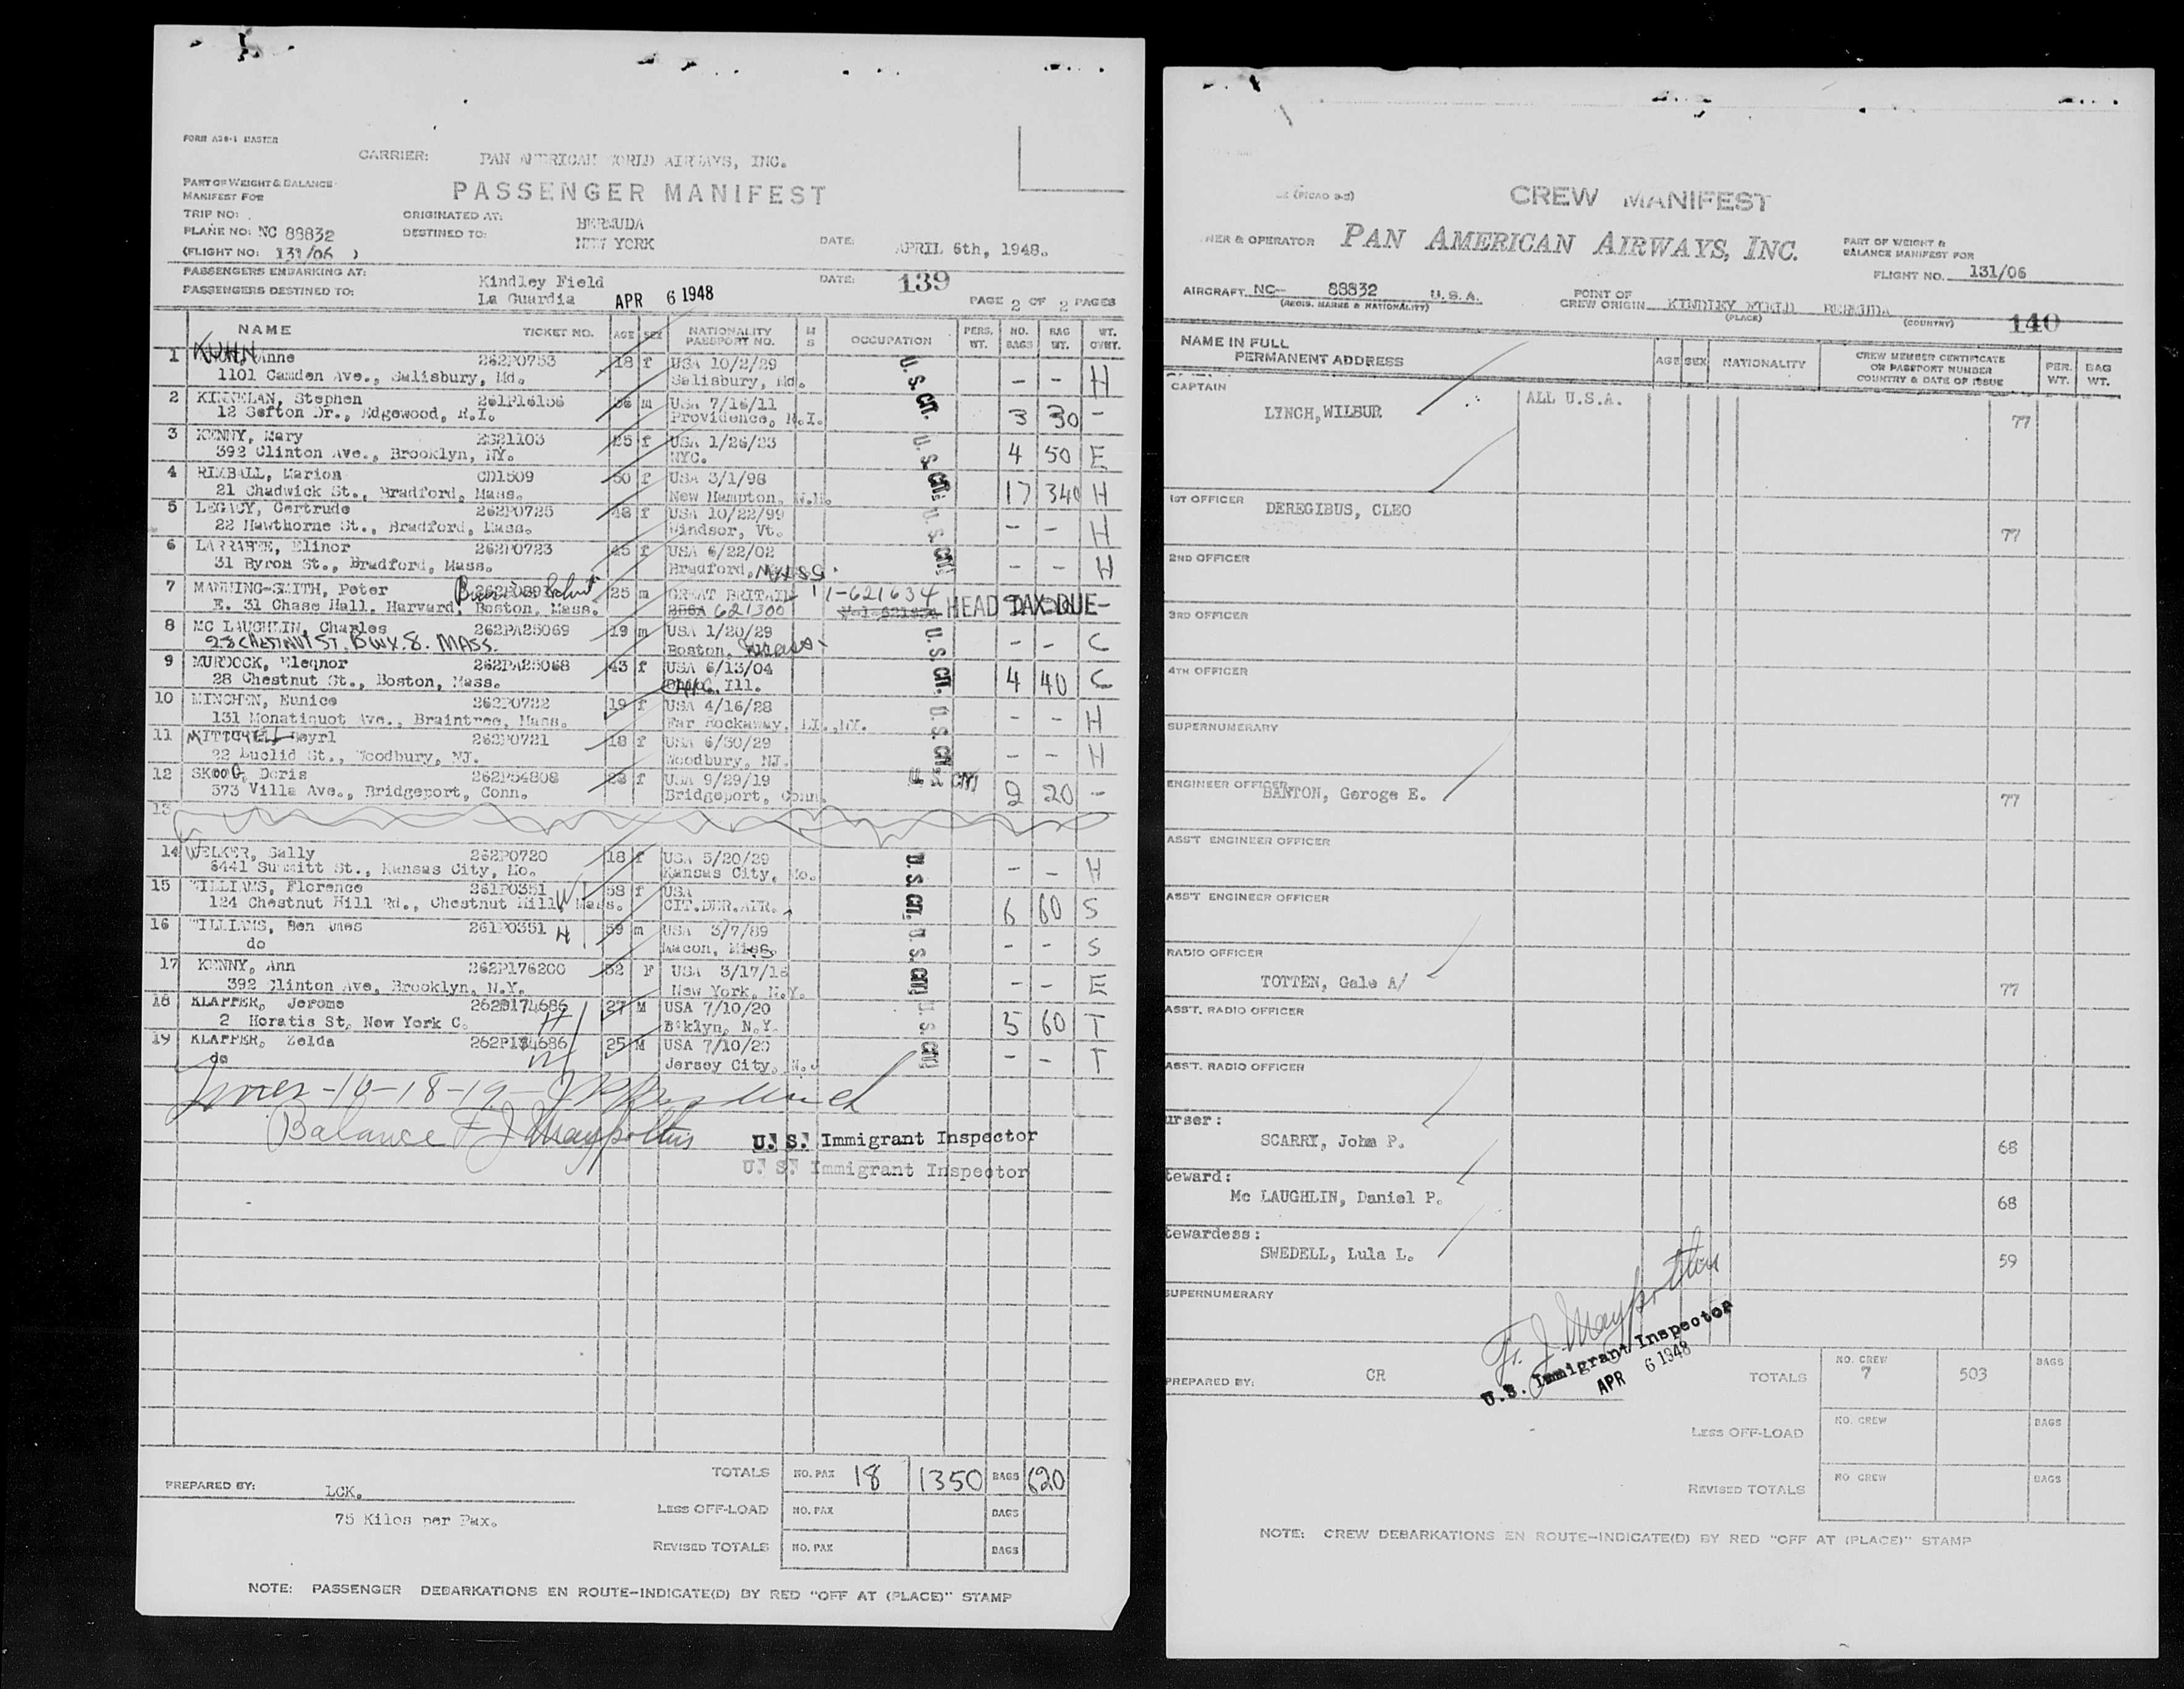 FORM A28-1 MASTER
CARRIER: PAN AMERICAN WORLD AIRWAYS, INC.
PASSENGER MANIFEST
PART OF WEIGHT & BALANCE
MANIFEST FOR
TRIP NO:
PLANE NO: NC 88832
(FLIGHT NO: 131/06 )
ORIGINATED AT: BERMUDA
DESTINED TO: NEW YORK
DATE: APRIL 6th, 1948.
PASSENGERS EMBARKING AT: Kindley Field
PASSENGERS DESTINED TO: La Guardia
APR 6 1948
DATE: 139
PAGE 2 OF 2 PAGES
NAME TICKET NO. AGE SEX NATIONALITY PASSPORT NO. M S OCCUPATION PERS. WT. NO. BAGS BAG WT. WT. OVHT.
1 KUHN, Anne 262P0753 18 f USA 10/2/29
1101 Camden Ave., Salisbury, Md. Salisbury, Md. - - H
2 KINNELAN, Stephen 261P16156 36 m USA 7/16/11
12 Sefton Dr., Edgewood, R.I. Providence, R.I. 3 30 -
3 KENNY, Mary ES21103 25 f USA 1/26/23
392 Clinton Ave., Brooklyn, NY. NYC. 4 50 E
4 RIMBALL, Marion CD1509 50 f USA 3/1/98
21 Chadwick St., Bradford, Mass. New Hampton, N.H. 17 340 H
5 LEGACY, Gertrude 262P0725 48 f USA 10/22/99
22 Hawthorne St., Bradford, Mass. Windsor, Vt. - - H
6 LARRABEE, Elinor 262P0723 45 f USA 6/22/02
31 Byrom St., Bradford, Mass. Bradford, MASS. - - H
7 MANNING-SMITH, Peter 25 m GREAT BRITAIN 1-621634
E. 31 Chase Hall, Harvard, Boston, Mass. 621300 HEAD TAX DUE -
8 MC LAUGHLIN, Charles 262PA25069 19 m USA 1/20/29
28 CHESTNUT ST. MASS. Boston, Mass. - - C
9 MURDOCK, Eleqnor 262PA25068 43 f USA 6/13/04
28 Chestnut St., Boston, Mass. Ill. 4 40 C
10 MINCHEN, Eunice 262P0722 19 f USA 4/16/28
131 Monatiquot Ave., Braintree, Mass. Far Rockaway, LI.,NY. - - H
11 MITTCHELL, Beyrl 262P0721 18 f USA 6/30/29
22 Euclid St., Woodbury, NJ. Woodbury, NJ. - - H
12 SKOOG, Doris 262P54808 28 f USA 9/29/19
573 Villa Ave., Bridgeport, Conn. Bridgeport, Conn. 2 20 -
13
14 WELKER, Sally 262P0720 18 f USA 5/20/29
6441 Summitt St., Kansas City, Mo. Kansas City, Mo. - - H
15 WILLIAMS, Florence 261P0351 W 58 f USA
124 Chestnut Hill Rd., Chestnut Hill, Mass. CIT.DER.AFR. 6 60 S
16 WILLIAMS, Ben Ames 261P0351 H 59 m USA 3/7/89
do Macon, Miss. - - S
17 KENNY, Ann 262P176200 32 F USA 3/17/16
392 Clinton Ave, Brooklyn, N.Y. New York, N.Y. - - E
18 KLAPPER, Jerome 262P174686 H 27 M USA 7/10/20
2 Horatis St, New York C. B'klyn, N.Y. 5 60 T
19 KLAPPER, Zelda 262P174686 W 25 M USA 7/10/20
do Jersey City, N.J - - T
U.S.CIT. U.S.CIT. U.S.CIT. U.S.CIT. U.S.CIT. U.S.CIT. U.S.CIT. U.S.CIT. U.S.CIT.
16-18-19-
Balance F J Maypother
U. S. Immigrant Inspector
U. S. Immigrant Inspector
TOTALS NO. PAX 18 1350 BAGS 620
PREPARED BY: LCK.
75 Kilos per Pax.
LESS OFF-LOAD NO. PAX BAGS
REVISED TOTALS NO. PAX BAGS
NOTE: PASSENGER DEBARKATIONS EN ROUTE-INDICATE(D) BY RED "OFF AT (PLACE)" STAMP
CREW MANIFEST
OWNER & OPERATOR PAN AMERICAN AIRWAYS, INC.
PART OF WEIGHT &
BALANCE MANIFEST FOR
FLIGHT NO. 131/06
AIRCRAFT NC- 88832 U.S.A.
(REGIS. MARKS & NATIONALITY)
POINT OF CREW ORIGIN KINDLEY FIELD BERMUDA
(PLACE) (COUNTRY)
140
NAME IN FULL
PERMANENT ADDRESS
AGE SEX NATIONALITY CREW MEMBER CERTIFICATE OR PASSPORT NUMBER COUNTRY & DATE OF ISSUE PER. WT. BAG WT.
CAPTAIN
LYNCH, WILBUR ALL U.S.A. 77
1ST OFFICER
DEREGIBUS, CLEO 77
2ND OFFICER
3RD OFFICER
4TH OFFICER
SUPERNUMERARY
ENGINEER OFFICER
BANTON, Geroge E. 77
ASS'T ENGINEER OFFICER
ASS'T ENGINEER OFFICER
RADIO OFFICER
TOTTEN, Gale A/ 77
ASS'T. RADIO OFFICER
ASS'T. RADIO OFFICER
urser:
SCARRY, John P. 68
teward:
Mc LAUGHLIN, Daniel P. 68
tewardess:
SWEDELL, Lula L. 59
SUPERNUMERARY
F. J. Maypother
U.S. Immigrant Inspector
APR 6 1948
PREPARED BY: CR
TOTALS NO. CREW 7 503 BAGS
LESS OFF-LOAD NO. CREW BAGS
REVISED TOTALS NO CREW BAGS
NOTE: CREW DEBARKATIONS EN ROUTE-INDICATE(D) BY RED "OFF AT (PLACE)" STAMP